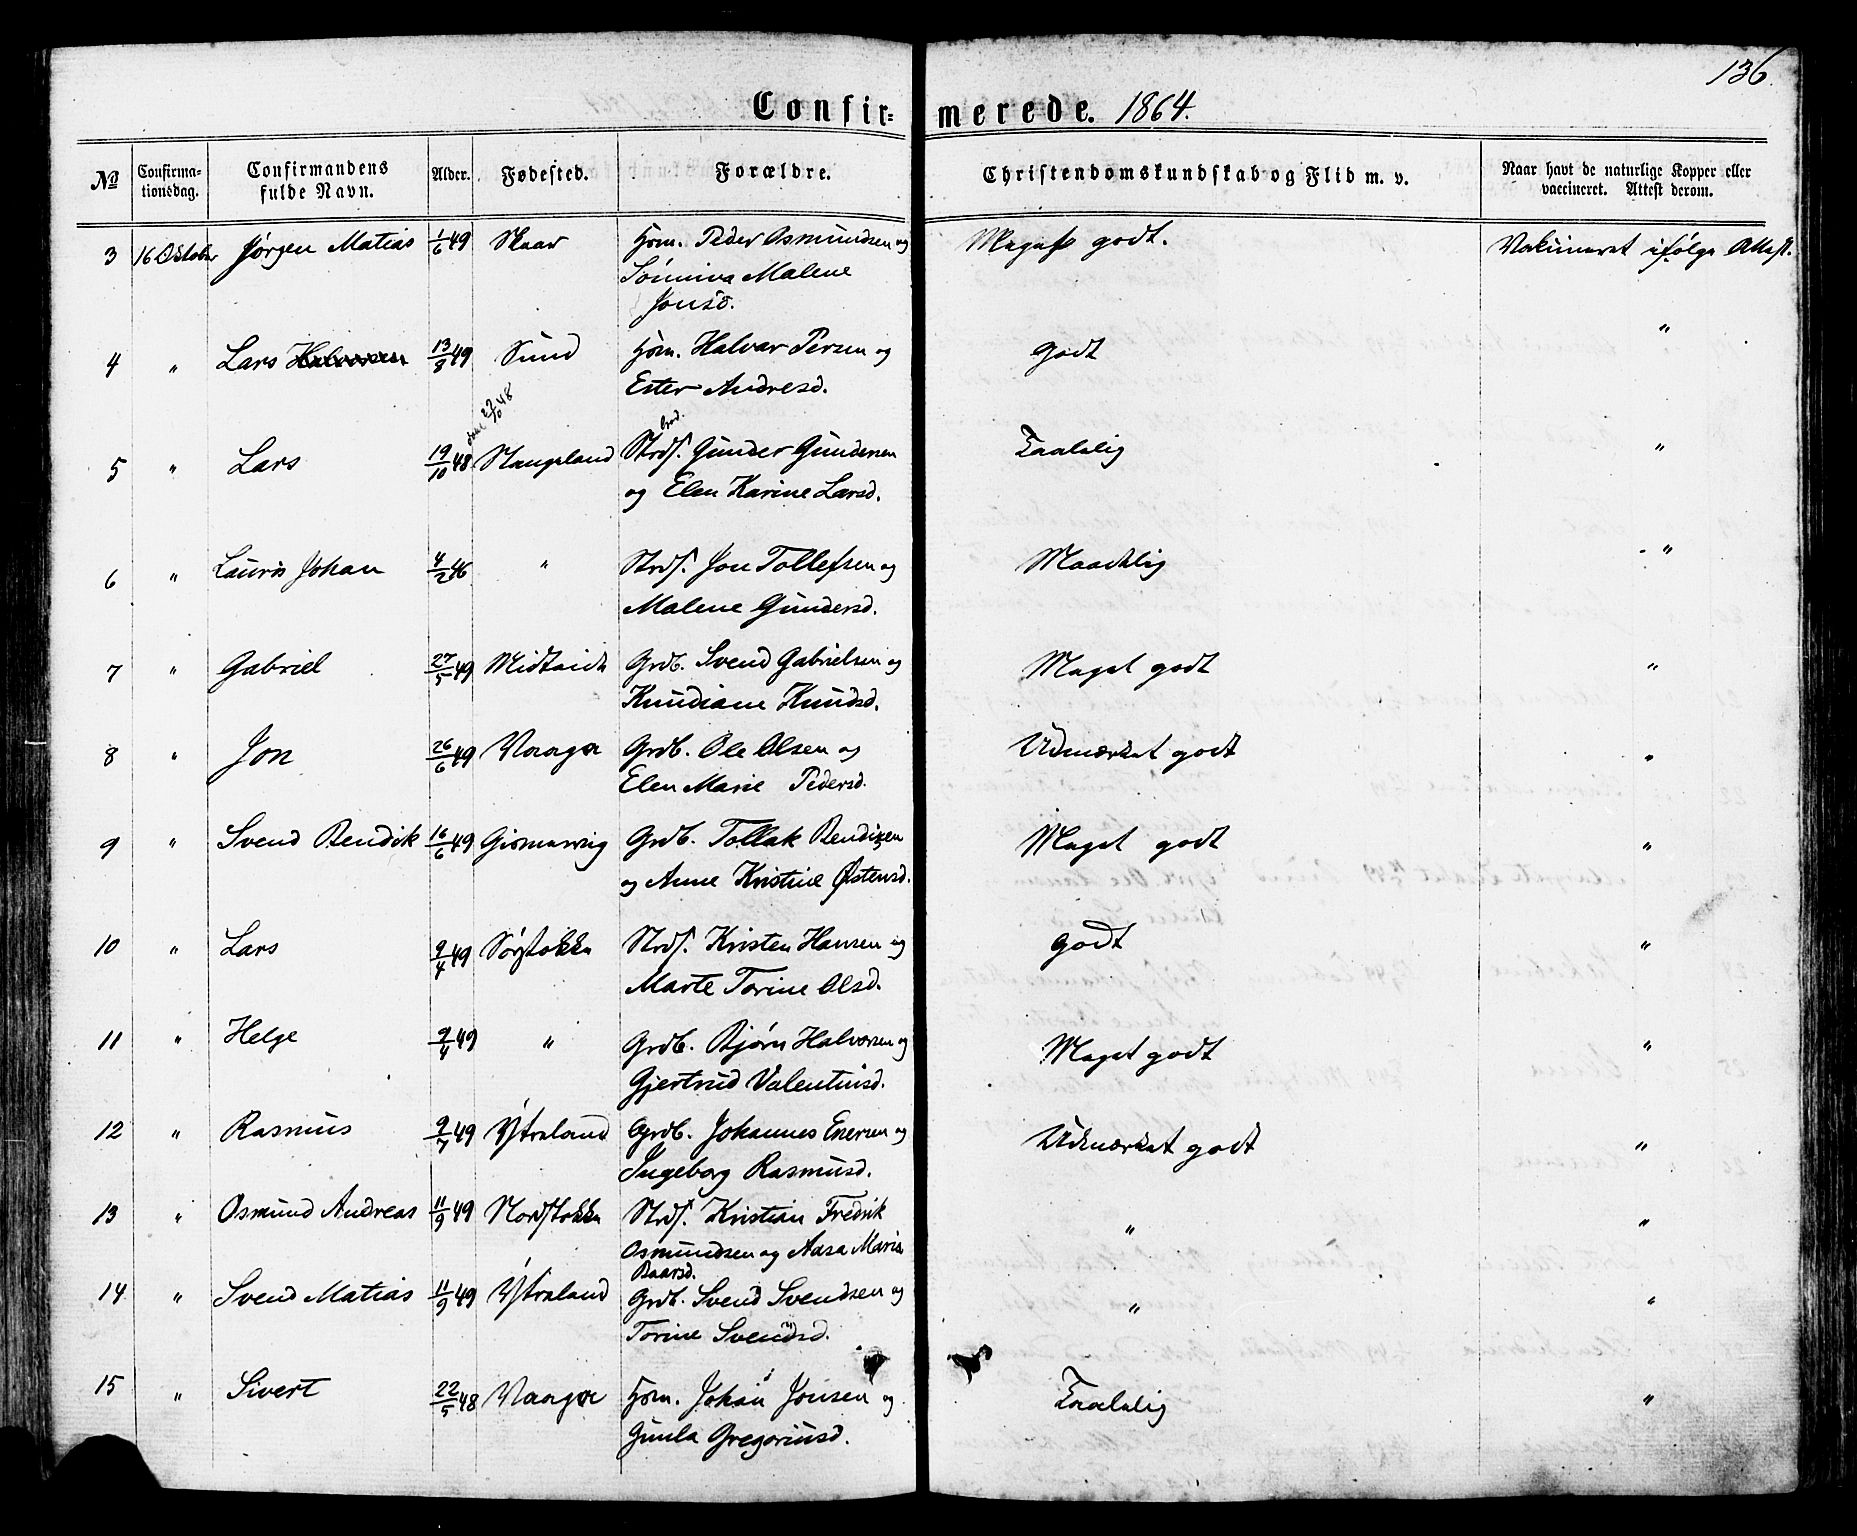 136.
Confir= merede. 1864.
№ Confirma-tionsdag. Confirmandens fulde Navn. Alder. Fødested. Forældre. Christendomskundskab og Flid m. v. Naar havt de naturlige Kopper eller vaccineret. Attest derom.
3 16 Oktober Jørgen Matias 1/6 49 Skaar Hsm. Peder Osmundsen og Meget godt. Vakcineret ifølge Attest.
Sønniva Malene
Jonsd.
4 " Lars 13/8 49 Sund Hsm. Halvar Persen og godt "
Ester Andresd.
27/10 48
5 " Lars 19/10 48 Stangeland Strds. Gunder Gundersen Taalelig "
og Elen Karine Larsd.
6 " Lauris Johan 4/2 46 " Strds. Jon Tollefsen og Maadelig "
Malene Gundersd.
7 " Gabriel 27/5 49 Midtvids Grdb. Svend Gabrielsen og Meget godt "
Knudiane Knudsd.
8 " Jon 26/6 49 Vaage Grdb. Ole Olsen og Udmærket godt "
Elen Marie Pedersd.
9 " Svend Bendik 16/6 49 Gismarvig Grdb. Tollak Bendixen Meget godt "
og Anne Kristine Østensd.
10 " Lars 9/4 49 Sørstokke Strds. Kristen Hansen og godt "
Marte Torine Olsd.
11 " Helge 9/4 49 " Grdb. Bjørn Halvorsen og Meget godt "
Gjertrud Valentinsd.
12 " Rasmus 9/7 49 Ytreland Grdb. Johannes Enersen og Udmærket godt "
Ingeborg Rasmusd.
13 " Osmund Andreas 11/9 49 Nordstokke Strds. Kristian Fredrik " "
Osmundsen og Aasa Maria
Baarsd.
14 " Svend Matias 11/9 49 Ytreland Grdb. Svend Svendsen og " "
Torine Svendsd.
15 " Sivert 22/5 48 Vaage Hsm. Johan Jonsen og Taalelig "
Gunla Gregoriusd.